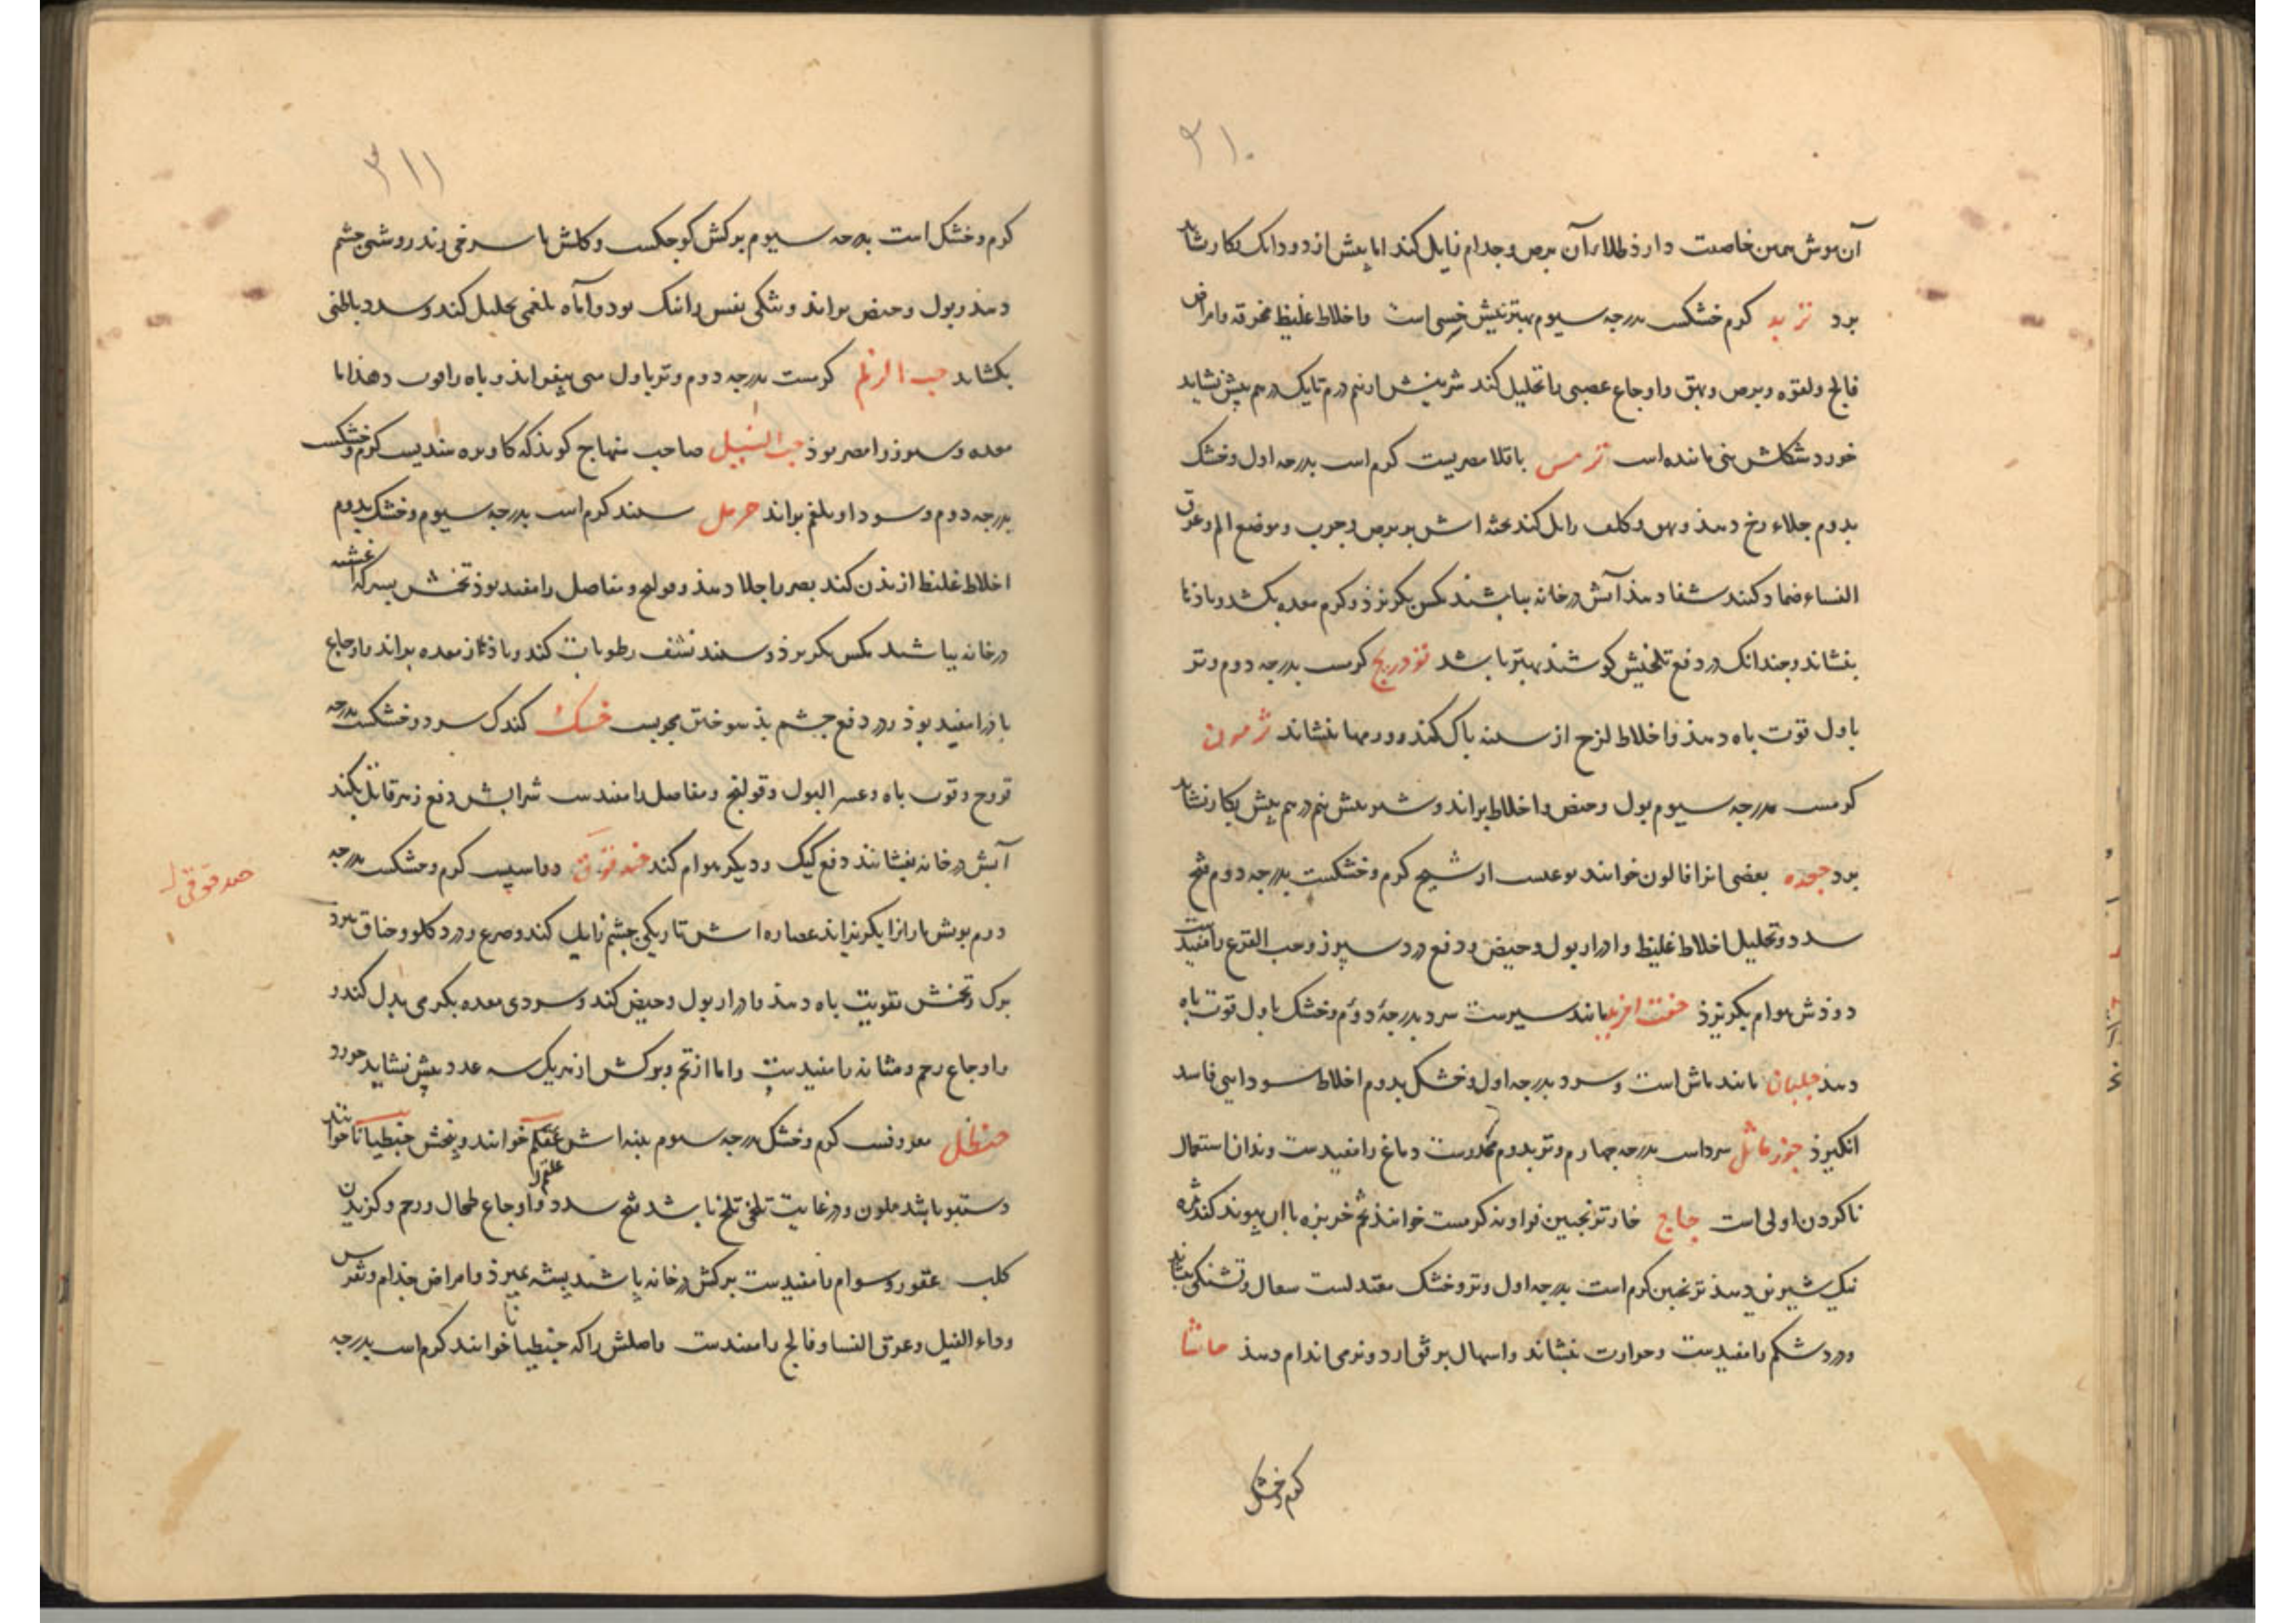 ۳۱۰
آن موش همین خاصیت دارذ طلاءآن برص و جذام زایل کند اما بیش از دو دانک بکار نشاید
برد تربد کرم خشکست بدرجه سیوم بهترینش است و اخلاط غلیظ محترقه و امراض
فالج و لقوه و برص و بهق و اوجاع عصبی را تحلیل کند شربتش از نیم درم تا یک درهم بیش نشاید
خورد شکلش نی مانندهاست ترمس باقلا مصریست کرم است بدرجه اول و خشک
بدوم جلاء رخ دهذ و بهق و کلف زایل کند اش بر برص و جرب و موضع الم و عرق
النساء ضماد کنند شفا دهذ آبش در خانه بپاشند مکس بکریزذ و کرم معده بکشد و باذها
بنشاند و چندانک در دفع تلخیش کوشند بهتر باشد تودریج کرمست بدرجه دوم و تر
باول قوت باه دهذ و اخلاط لزج از سینه پاک کند و ورمها بنشاند
کرمست بدرجه سیوم بول و حیض و اخلاط براند و شربتش نیم درهم بیش بکار نشاید
برد جعده بعضی انرا خوانند نوعیست از شیح کرم و خشکست بدرجه دوم فتح
سدد و تحلیل اخلاط غلیظ و ادرار بول و حیض و دفع درد سپرز و حب القرع را مفیدست
دوذش هوام بکریزذ جفت افرید مانند سیرست سرد بدرجهٔ دوم و خشک باول قوت باه
دهذ جلبان مانند ماش است و سرد بدرجه اول و خشک بدوم اخلاط سودایی فاسد
انکیزذ جوز ماثل سرداست بدرجه چهارم و تر بدوم مخدرست دماغ را مفیدست و بدان استعمال
ناکردن اولی است حاج خار ترنجبین فراوند کرمست خوانند تخم خربزه با ان پیوند کند ثمره
نیک شیرین دهذ ترنجبین کرم است بدرجه اول و تر و خشک معتدلست سعال و تشنکی بنشاند
و درد شکم را مفیدست و حرارت بنشاند و اسهال بر فق ارد و نرمی اندام دهذ حاشا
کرم و خشک
۳۱۱
کرم و خشک است بدرجه سیوم برکش کوچکست و کلش با سرخی زند روشنی چشم
دهذ و بول و حیض براند و تنکی نفس را نیک بود و آماه بلغمی تحلیل کند و سدد باطنی
بکشاید حب الزلم کرمست بدرجه دوم و تر باول منی بیفزاید و باه را قوت دهذ اما
معده و سپرز را مضر بوذ حب النیل صاحب منهاج کویذ که هندیست کرم و خشکست
بدرجه دوم و سودا و بلغم براند حرمل سپند کرم است بدرجه سیوم و خشک بدوم
اخلاط غلیظ از بدن کند بصر را جلا دهذ و قولنج و مفاصل را مفید بوذ تخمش بسرکه اغشته
در خانه بپاشند مکس بکریزذ و سپند نشف رطوبات کند و باذ از معده براند و اوجاع
باذ را مفید بوذ و در دفع چشم بذ سوختن مجربست خسک سرد و خشکست بدرجه
قروح و قوت باه و عسر البول و قولنج و مفاصل را مفیدست شرابش دفع زهر قاتل کند
آبش در خانه بفشانند دفع کیک و دیکر هوام کند حندقوقی دواسپست کرم و خشکست بدرجه
دوم بویش مارانرا بکریزاند عصاره اش تاریکی چشم زایل کند و صرع و درد کلو و خناق ببرد
برک و تخمش تقویت باه دهذ و ادرار بول و حیض کند و سردی معده بکرمی بدل کند و
و اوجاع رحم و مثانه را مفیدست و اما از تخم و برکش از هریک سه عدد بیش نشاید خورد
حنظل معروفست کرم و خشک بدرجه سیوم اش علقم خوانند و بیخش جنطیانا خوانند
دستنبو باشد ملون و در غایت تلخی تلخ باشد فتح سدد و اوجاع طحال و رحم و کزیدن
کلب عقور و سوام را مفیدست برکش در خانه پاشند پشه بمیرذ و امراض جذام و نقرس
و داء الفیل و عرق النسا و فالج را مفیدست و اصلش را که جنطیانا خوانند کرم است بدرجه